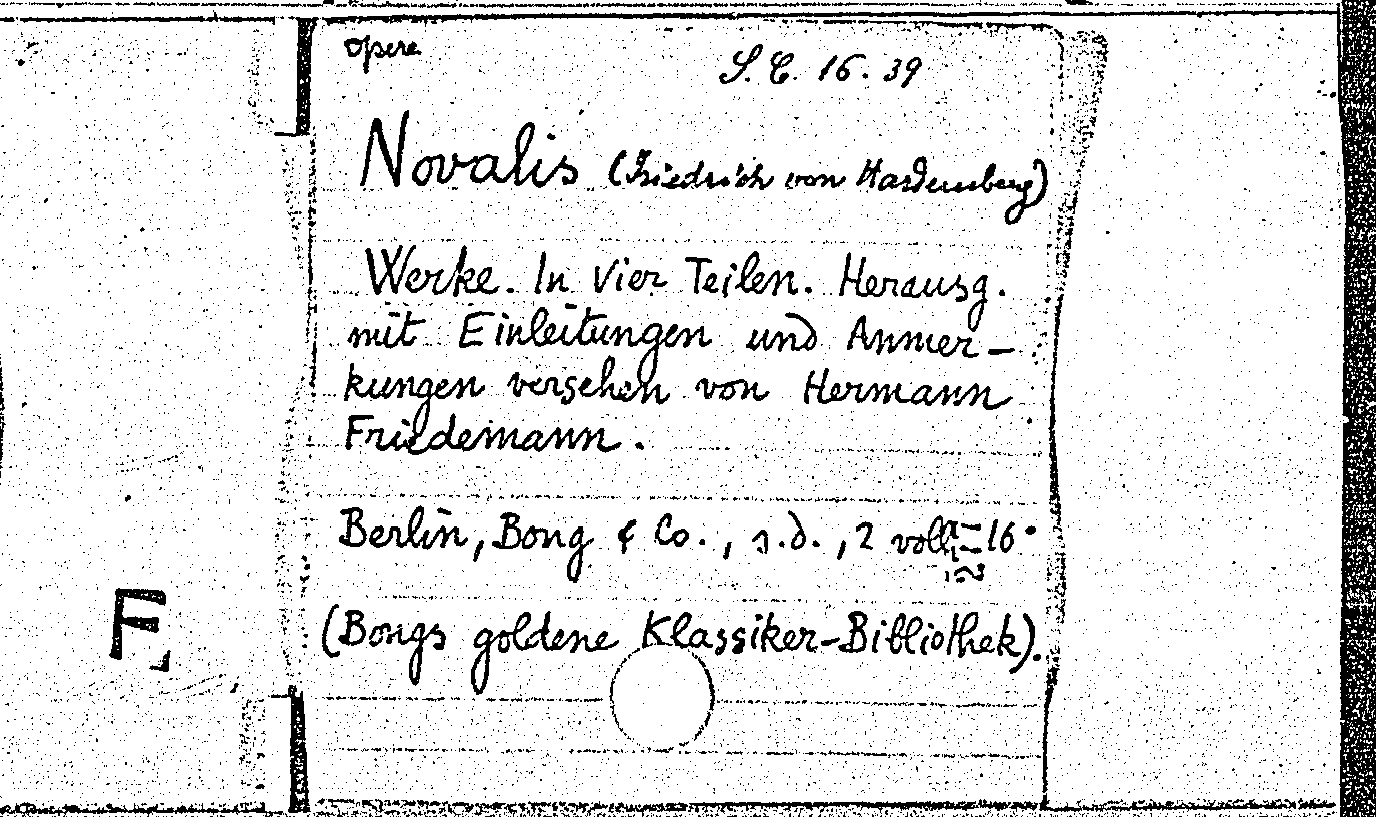 opere
S. C. 16. 39
Novalis (Friedrich von Hardenberg)
Werke. In Vier Teilen. Herausg.
mit Einleitungen und Anmer-
kungen versehen von Hermann
Friedemann.
Berlin, Bong & Co., s.d., 2 voll. 16°
(Bongs goldene Klassiker-Bibliothek).
F